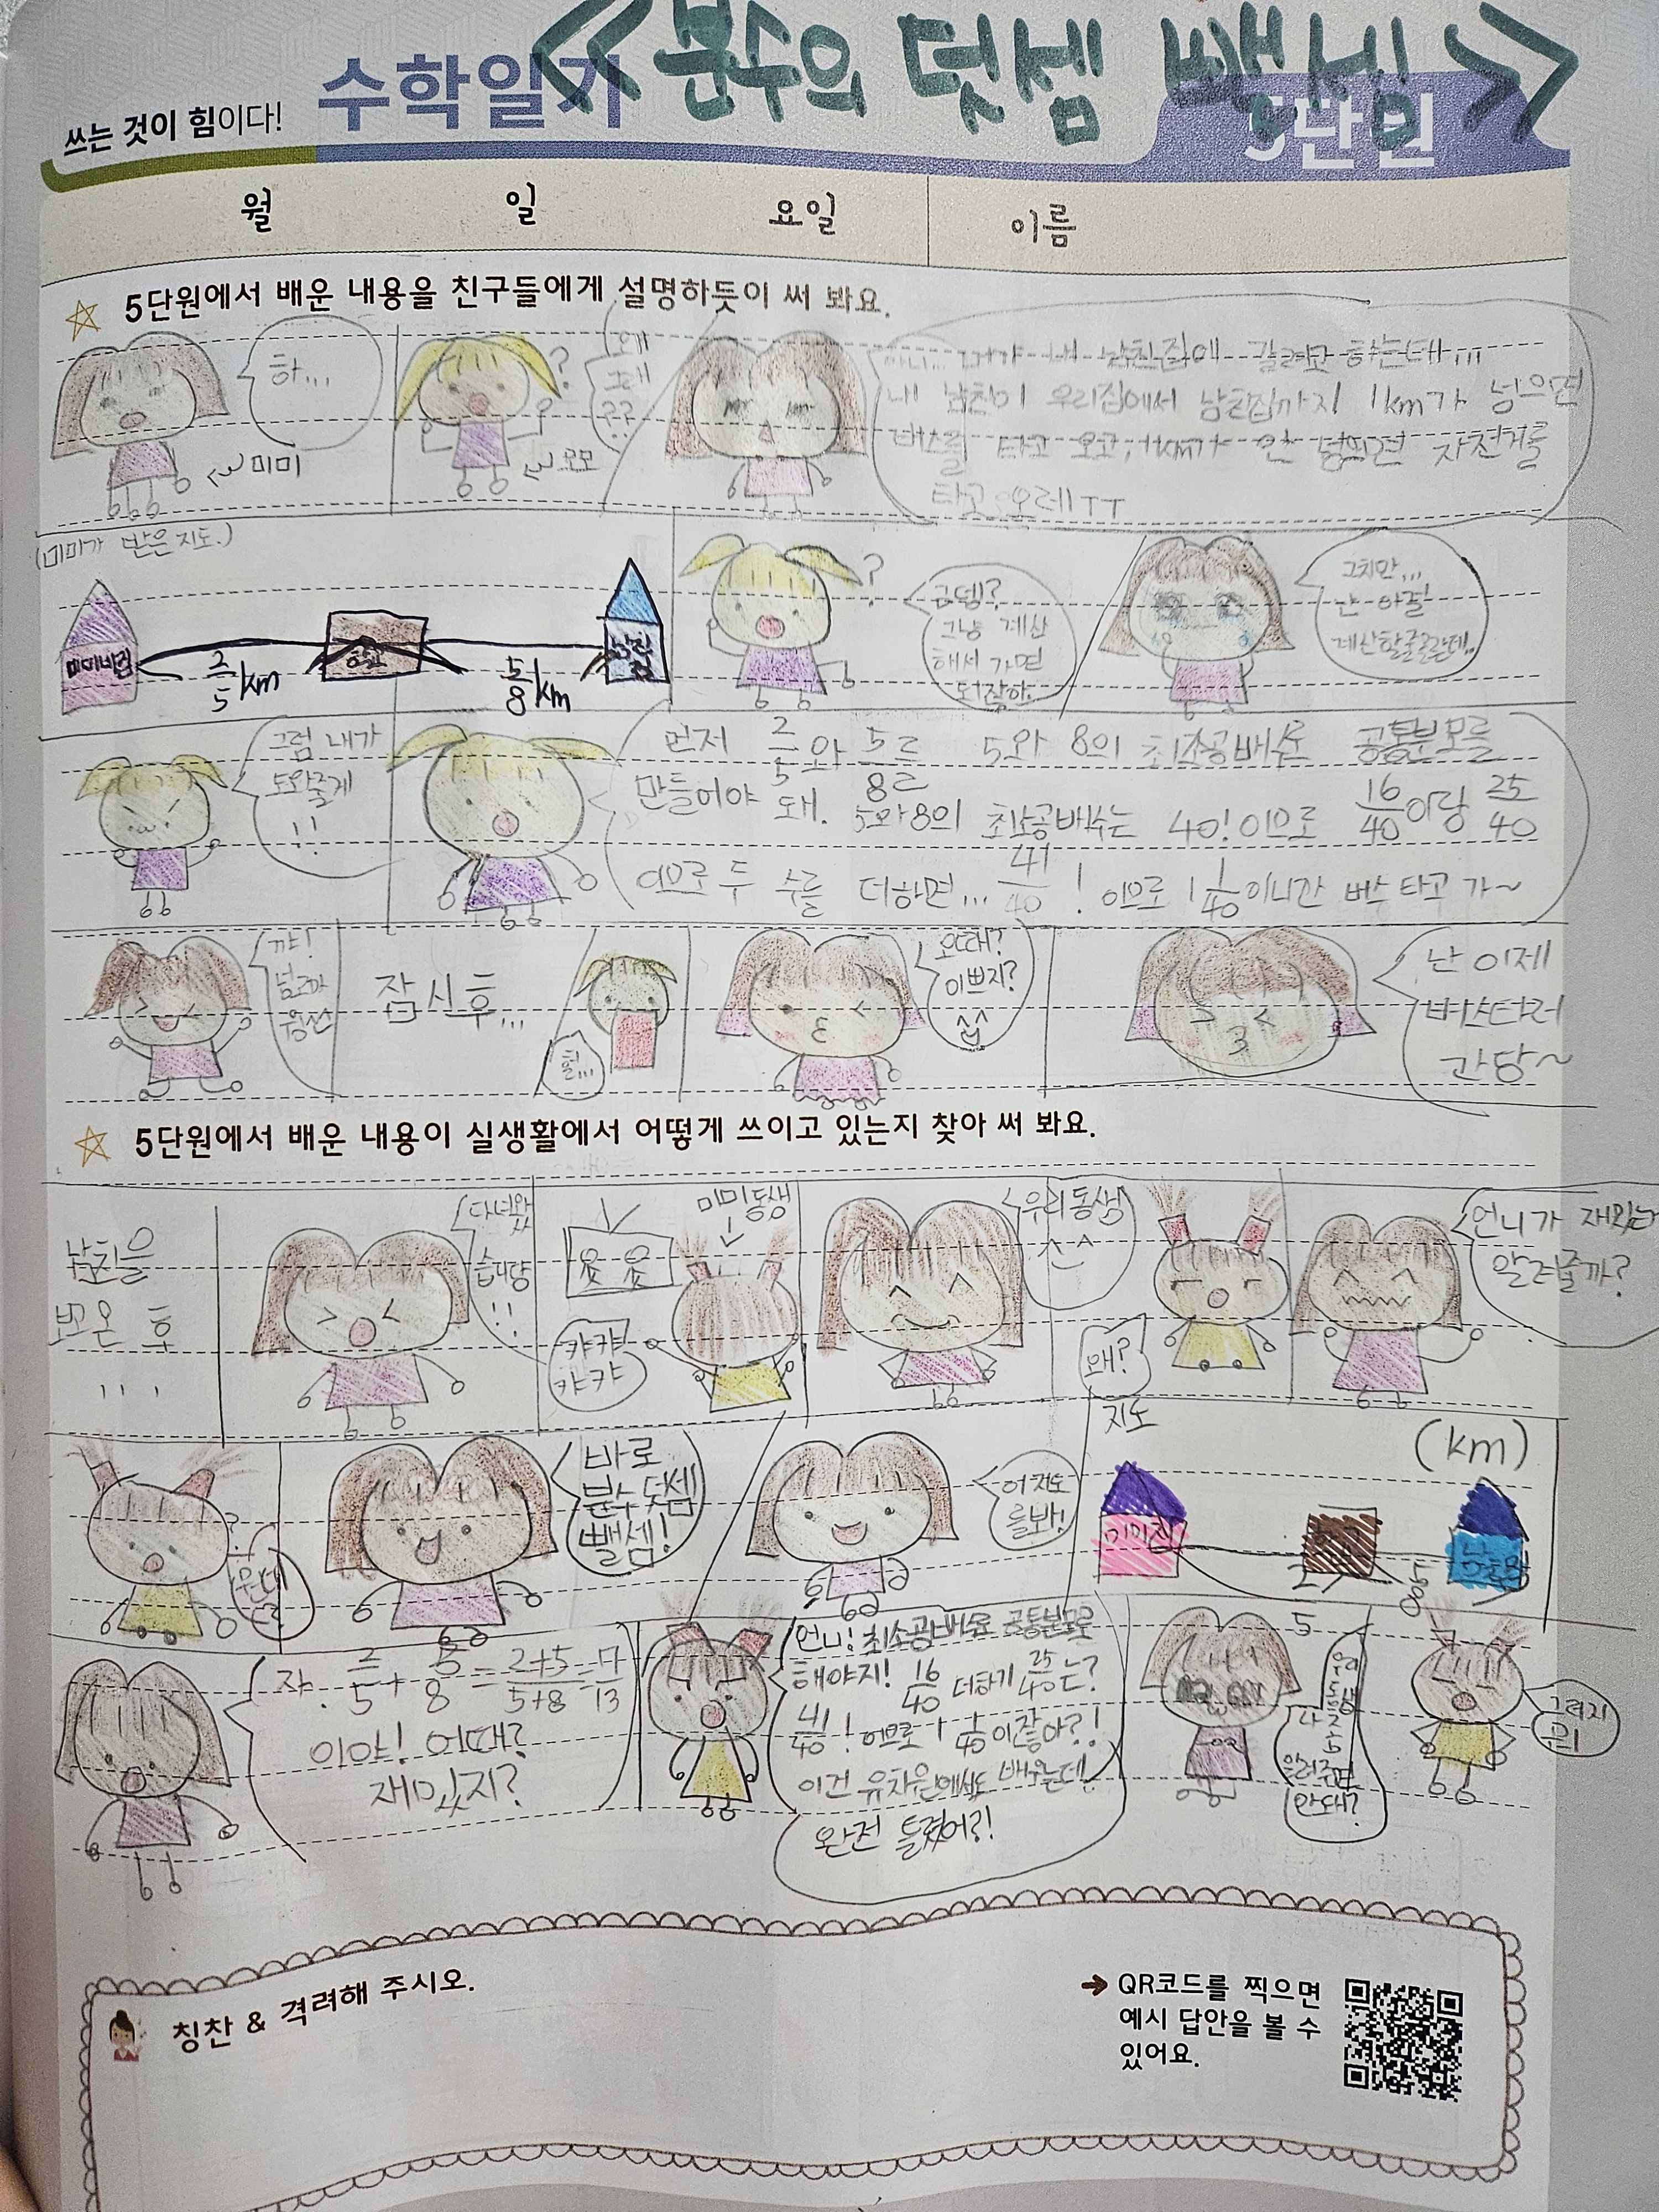 <<분수의 덧셈 뺄셈>>
쓰는 것이 힘이다! 수학일기
5단원
월 일 요일 이름
5단원에서 배운 내용을 친구들에게 설명하듯이 써 봐요.
하...
미미
?
왜
그래
??
모모
내가 내 남친집에 갈려고 하는데...
내 남친이 우리집에서 남친집까지 1km가 넘으면
버스를 타고 오고, 1km가 안 넘으면 자전거를
타고 오레ㅜㅜ
(미미가 받은 지도.)
미미네집
2/5 km
학교
5/8 km
남친집
?
근뎅?
그냥 계산
해서 가면
되잖아.
그치만...
난 아잘
계산할줄모른데.
그럼 내가
도와줄게
!!
먼저 2/5와 5/8르 5와 8의 최소공배수로 공통분모를
만들어야 돼. 5와8의 최소공배수는 40! 이으로 16/40이랑 25/40
이으로 두 수를 더하면... 41/40! 이으로 1 1/40이니깐 버스 타고 가~
꺄!
잠시후...
헐...
어때?
이쁘지?
난 이제
버스타러
간당~
5단원에서 배운 내용이 실생활에서 어떻게 쓰이고 있는지 찾아 써 봐요.
남친을
보고 온 후
...
다녀왔
습니당
!!
미미동생
꺄꺄
꺄꺄
우리동생
왜?
언니가 재밌는거
알려줄까?
?
바로
분수 덧셈
뺄셈!
이 지도
를봐!
지도
(km)
미미집
2/5
5/8
자. 2/5 + 5/8 = 2+5/5+8 = 7/13
이야! 어때?
재밌지?
언니! 최소공배수로 공통분모로
해야지! 16/40 더하기 25/40는?
41/40! 이으로 1 1/40이잖아?!
이건 유치원에서도 배우는데
완전 틀렸어?!
나 좀
알려주면
안돼?
그러지
뭐
칭찬 & 격려해 주시오.
QR코드를 찍으면
예시 답안을 볼 수
있어요.